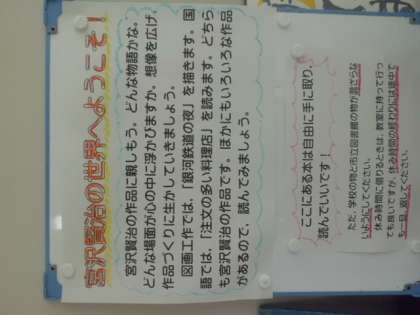 宮沢賢治の世界へようこそ！
宮沢賢治の作品に親しもう。どんな物語かな。
どんな場面が心の中に浮かびますか。想像を広げ、
作品づくりに生かしていきましょう。
図画工作では、「銀河鉄道の夜」を描きます。国
語では、「注文の多い料理店」を読みます。どちら
も宮沢賢治の作品です。ほかにもいろいろな作品
があるので、読んでみましょう。
ここにある本は自由に手に取り、
読んでいいです！
ただ、学校の物と市立図書館の物が混ざらな
いようにしてください。
休み時間に借りるときは、教室に持って行っ
ても良いですが、休み時間の終わりには途中で
も一旦、返してください。